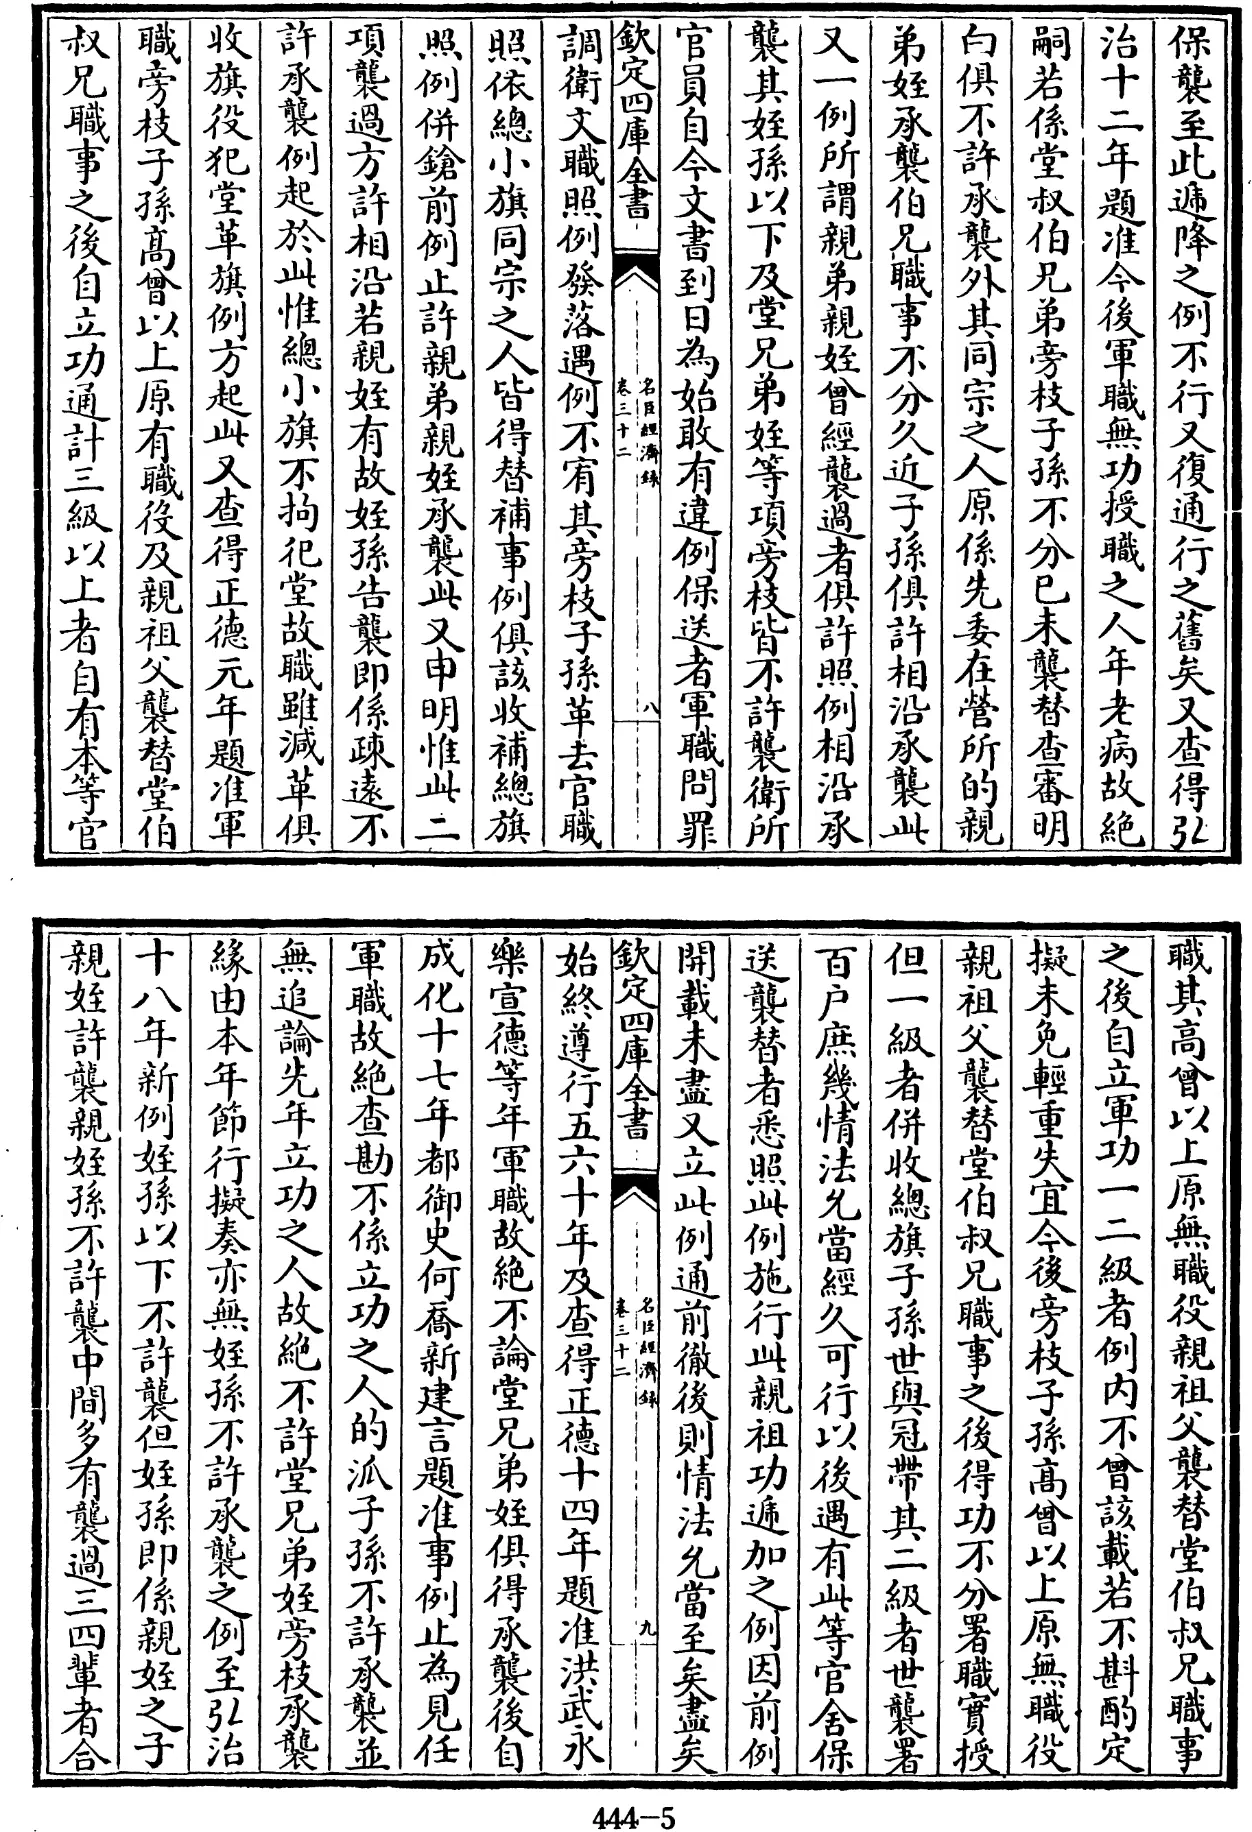 保襲至此遞降之例不行又復通行之舊矣又查得弘
治十二年題准今後軍職無功授職之人年老病故絶
嗣若係堂叔伯兄弟旁枝子孫不分已未襲替查審明
白俱不許承襲外其同宗之人原係先委在營所的親
弟姪承襲伯兄職事不分久近子孫俱許相沿承襲此
又一例所謂親弟親姪曾經襲過者俱許照例相沿承
襲其姪孫以下及堂兄弟姪等項旁枝皆不許襲衛所
官員自今文書到日為始敢有違例保送者軍職問罪
欽定四庫全書
名臣經濟録
卷三十二
八
調衛文職照例發落遇例不宥其旁枝子孫革去官職
照依總小旗同宗之人皆得替補事例俱該收補總旗
照例併鎗前例止許親弟親姪承襲此又申明惟此二
項襲過方許相沿若親姪有故姪孫告襲即係疎遠不
許承襲例起於此惟總小旗不拘犯堂故職雖減革俱
收旗役犯堂革旗例方起此又查得正德元年題准軍
職旁枝子孫高曾以上原有職役及親祖父襲替堂伯
叔兄職事之後自立功通計三級以上者自有本等官
職其高曾以上原無職役親祖父襲替堂伯叔兄職事
之後自立軍功一二級者例内不曾該載若不斟酌定
擬未免輕重失宜今後旁枝子孫高曾以上原無職役
親祖父襲替堂伯叔兄職事之後得功不分署職實授
但一級者併收總旗子孫世與冠帶其二級者世襲署
百户庶幾情法允當經久可行以後遇有此等官舍保
送襲替者悉照此例施行此親祖功遞加之例因前例
開載未盡又立此例通前徹後則情法允當至矣盡矣
欽定四庫全書
名臣經濟録
卷三十二
九
始終遵行五六十年及查得正德十四年題准洪武永
樂宣德等年軍職故絶不論堂兄弟姪俱得承襲後自
成化十七年都御史何喬新建言題准事例止為見任
軍職故絶查勘不係立功之人的派子孫不許承襲並
無追論先年立功之人故絶不許堂兄弟姪旁枝承襲
緣由本年節行擬奏亦無姪孫不許承襲之例至弘治
十八年新例姪孫以下不許襲但姪孫即係親姪之子
親姪許襲親姪孫不許襲中間多有襲過三四輩者合
444-5